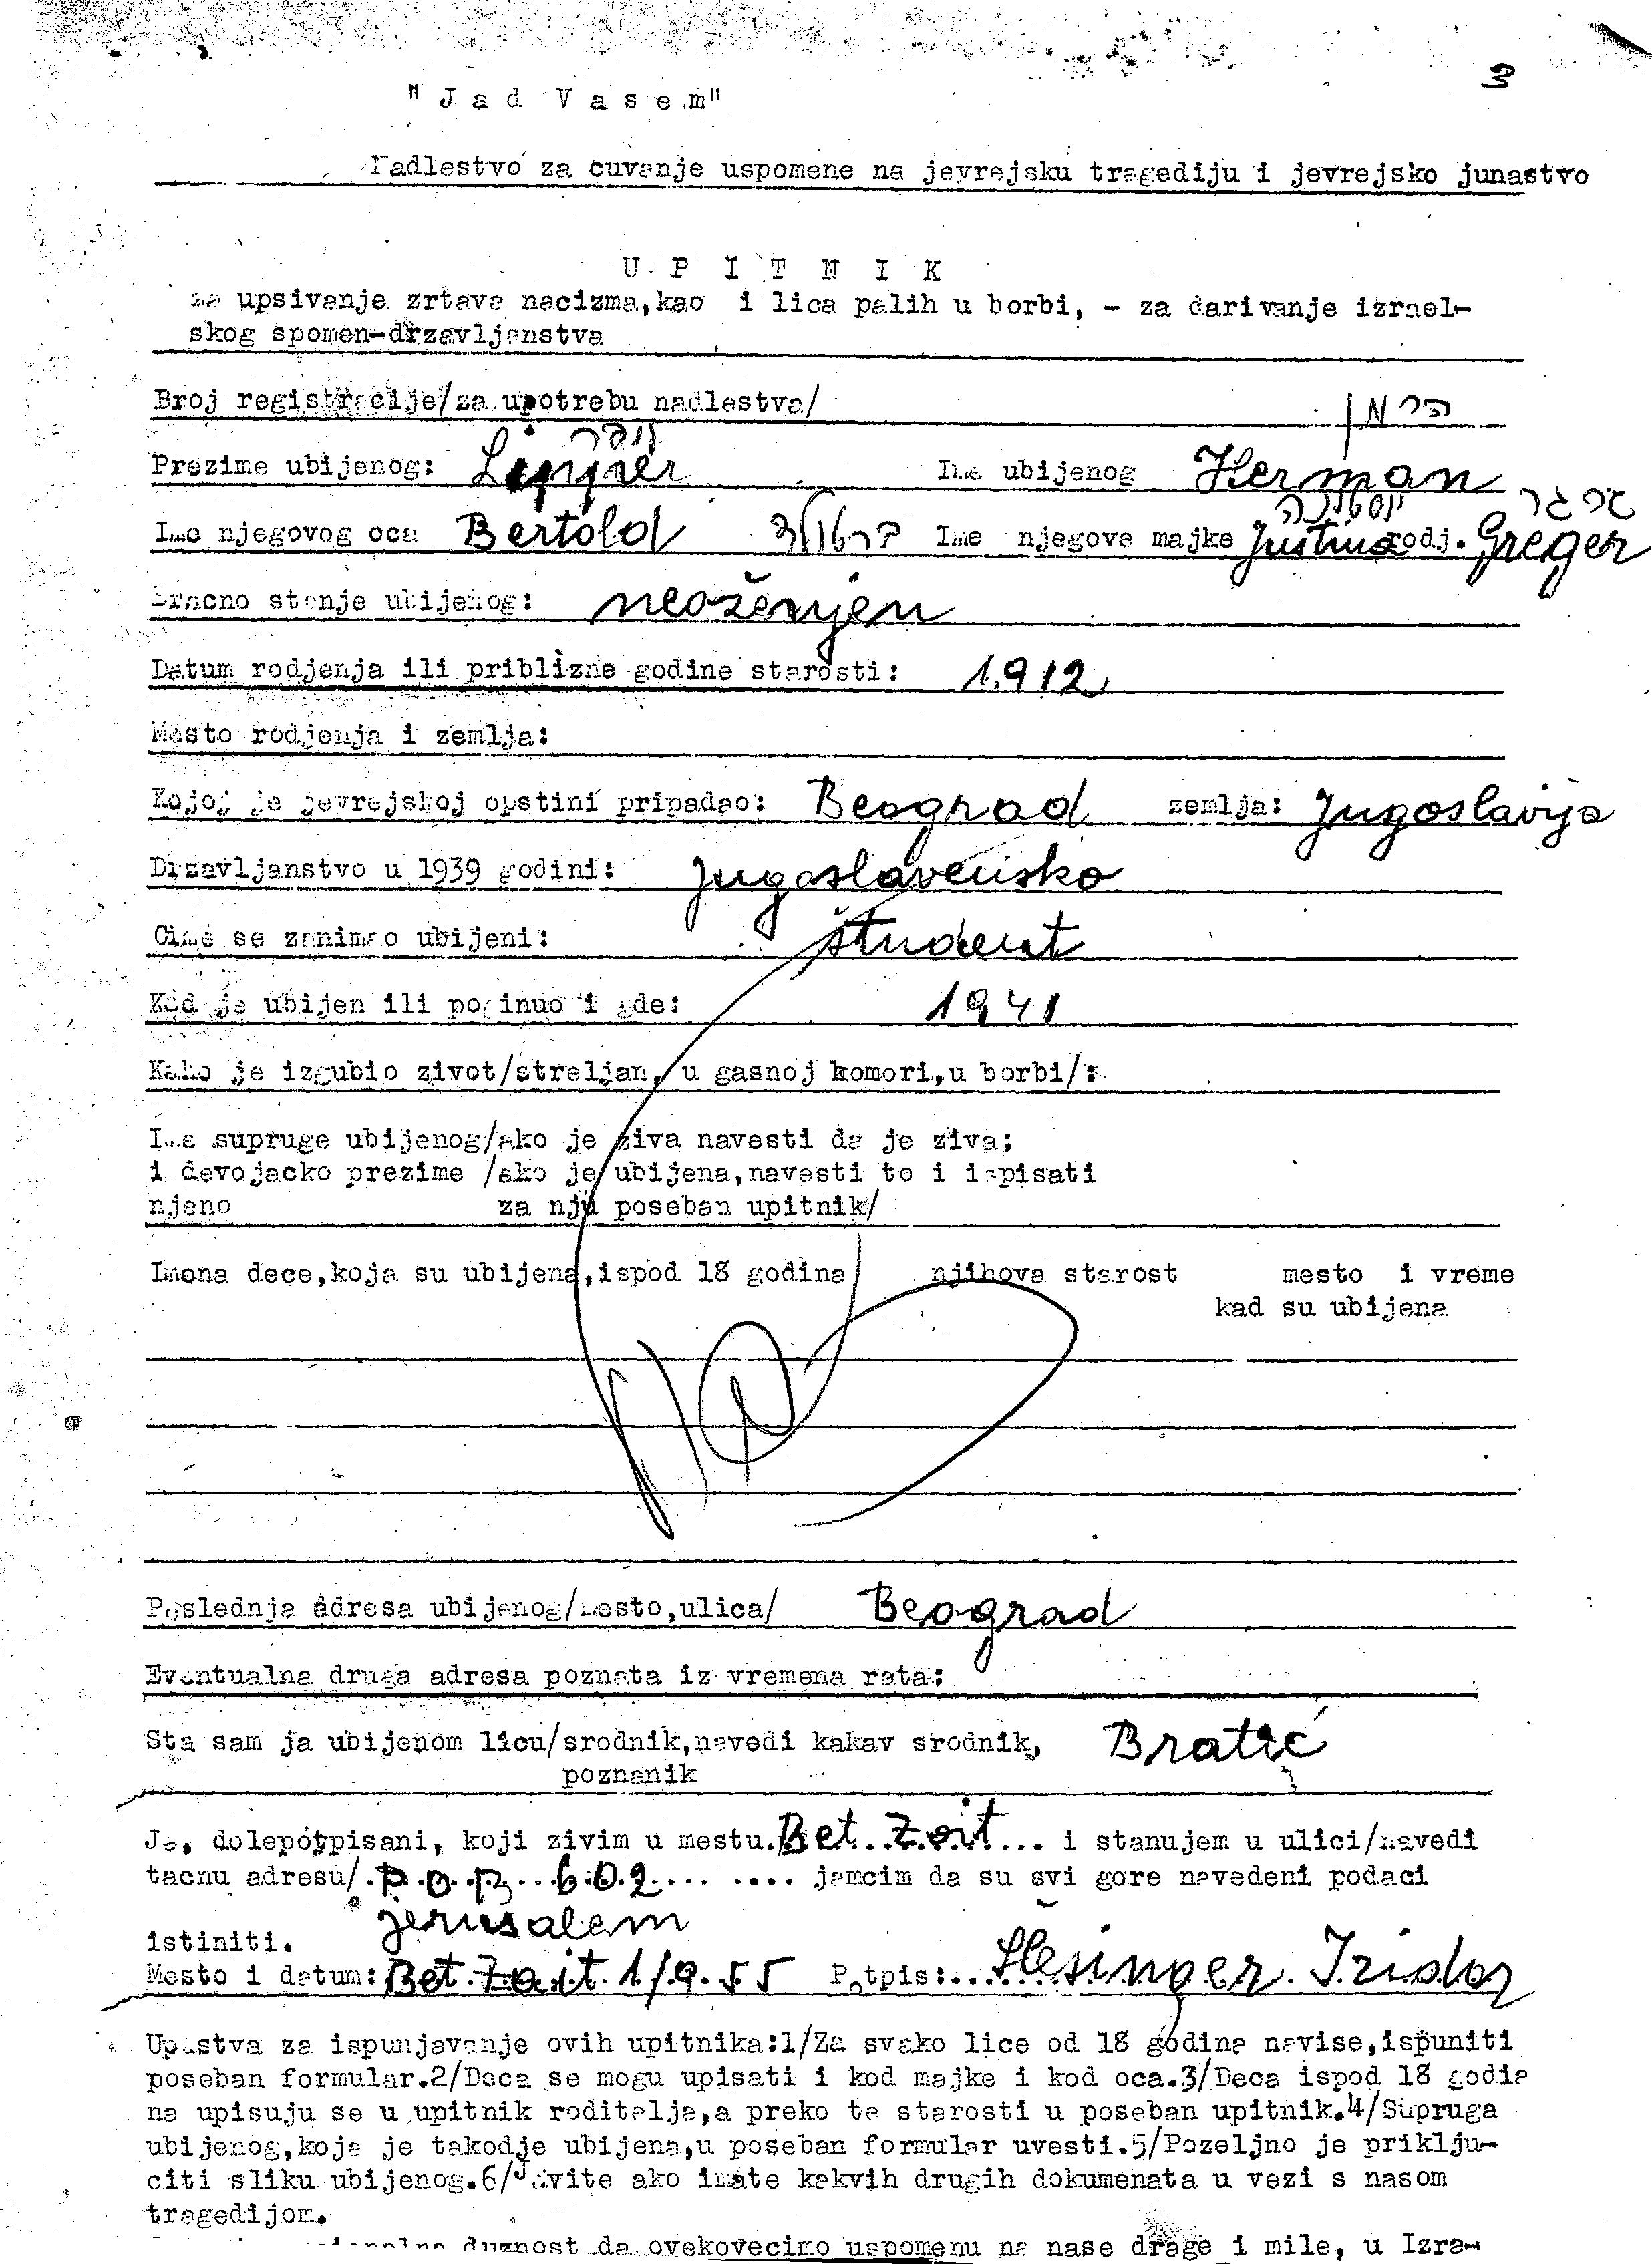 3
"Jad Vasem"
Nadlestvo za cuvanje uspomene na jevrejsku tragediju i jevrejsko junastvo
UPITNIK
za upsivanje zrtava nacizma,kao i lica palih u borbi, - za darivanje izrael-
skog spomen-drzavljanstva
Broj registracije/za upotrebu nadlestva/
Prezime ubijenog: Lipper Ime ubijenog Herman
Ime njegovog oca Bertold Ime njegove majke Justina rodj. Greger
Bracno stanje ubijenog: neoženjen
Datum rodjenja ili priblizne godine starosti: 1912
Mesto rodjenja i zemlja:
Kojoj je jevrejskoj opstini pripadao: Beograd zemlja: Jugoslavija
Drzavljanstvo u 1939 godini: Jugoslavensko
Cime se zanimao ubijeni: študent
Kad je ubijen ili poginuo i gde: 1941
Kako je izgubio zivot/streljan, u gasnoj komori,u borbi/:
Ime supruge ubijenog/ako je ziva navesti da je ziva;
i devojacko prezime /ako je ubijena,navesti to i ispisati
njeno za nju poseban upitnik/
Imena dece,koja su ubijena,ispod 18 godina njihova starost mesto i vreme
kad su ubijena
Poslednja adresa ubijenog/mesto,ulica/ Beograd
Eventualna druga adresa poznata iz vremena rata:
Sta sam ja ubijenom licu/srodnik,navedi kakav srodnik, Bratić
poznanik
Ja, dolepotpisani, koji zivim u mestu Bet Zait i stanujem u ulici/navedi
tacnu adresu/ P.O.B. 602 jamcim da su svi gore navedeni podaci
istiniti. Jerusalem
Mesto i datum: Bet Zait 1/9.55 Potpis: Šlesinger Izidor
Upustva za ispunjavanje ovih upitnika:1/Za svako lice od 18 godina navise,ispuniti
poseban formular.2/Deca se mogu upisati i kod majke i kod oca.3/Deca ispod 18 godia
na upisuju se u upitnik roditelja,a preko te starosti u poseban upitnik.4/Supruga
ubijenog,koja je takodje ubijena,u poseban formular uvesti.5/Pozeljno je priklju-
citi sliku ubijenog.6/Javite ako imate kakvih drugih dokumenata u vezi s nasom
tragedijom.
duznost da ovekovecimo uspomenu na nase drage i mile, u Izra-